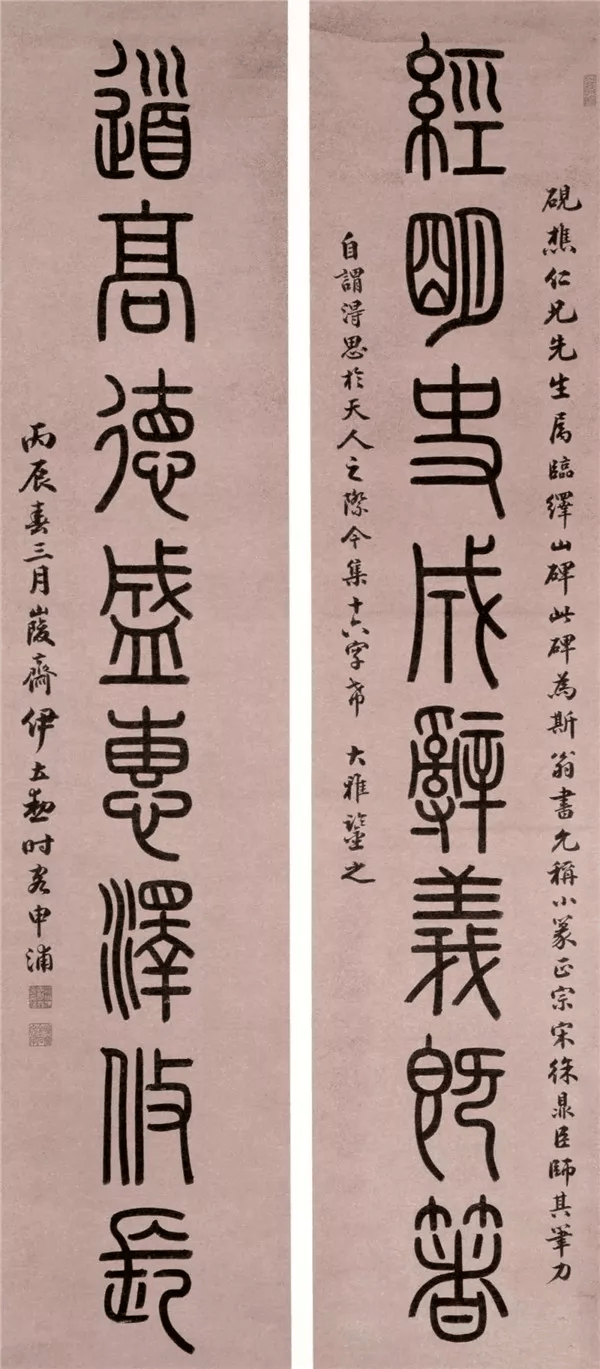 硯樵仁兄先生属臨繹山碑此碑為斯翁書允稱小篆正宗宋徐鼎臣師其筆力
經明史成辭義既箸
自謂得思於天人之際今集十六字希 大雅鑒之
道高德盛惠澤攸長
丙辰春三月峻齋伊立勳時客申浦